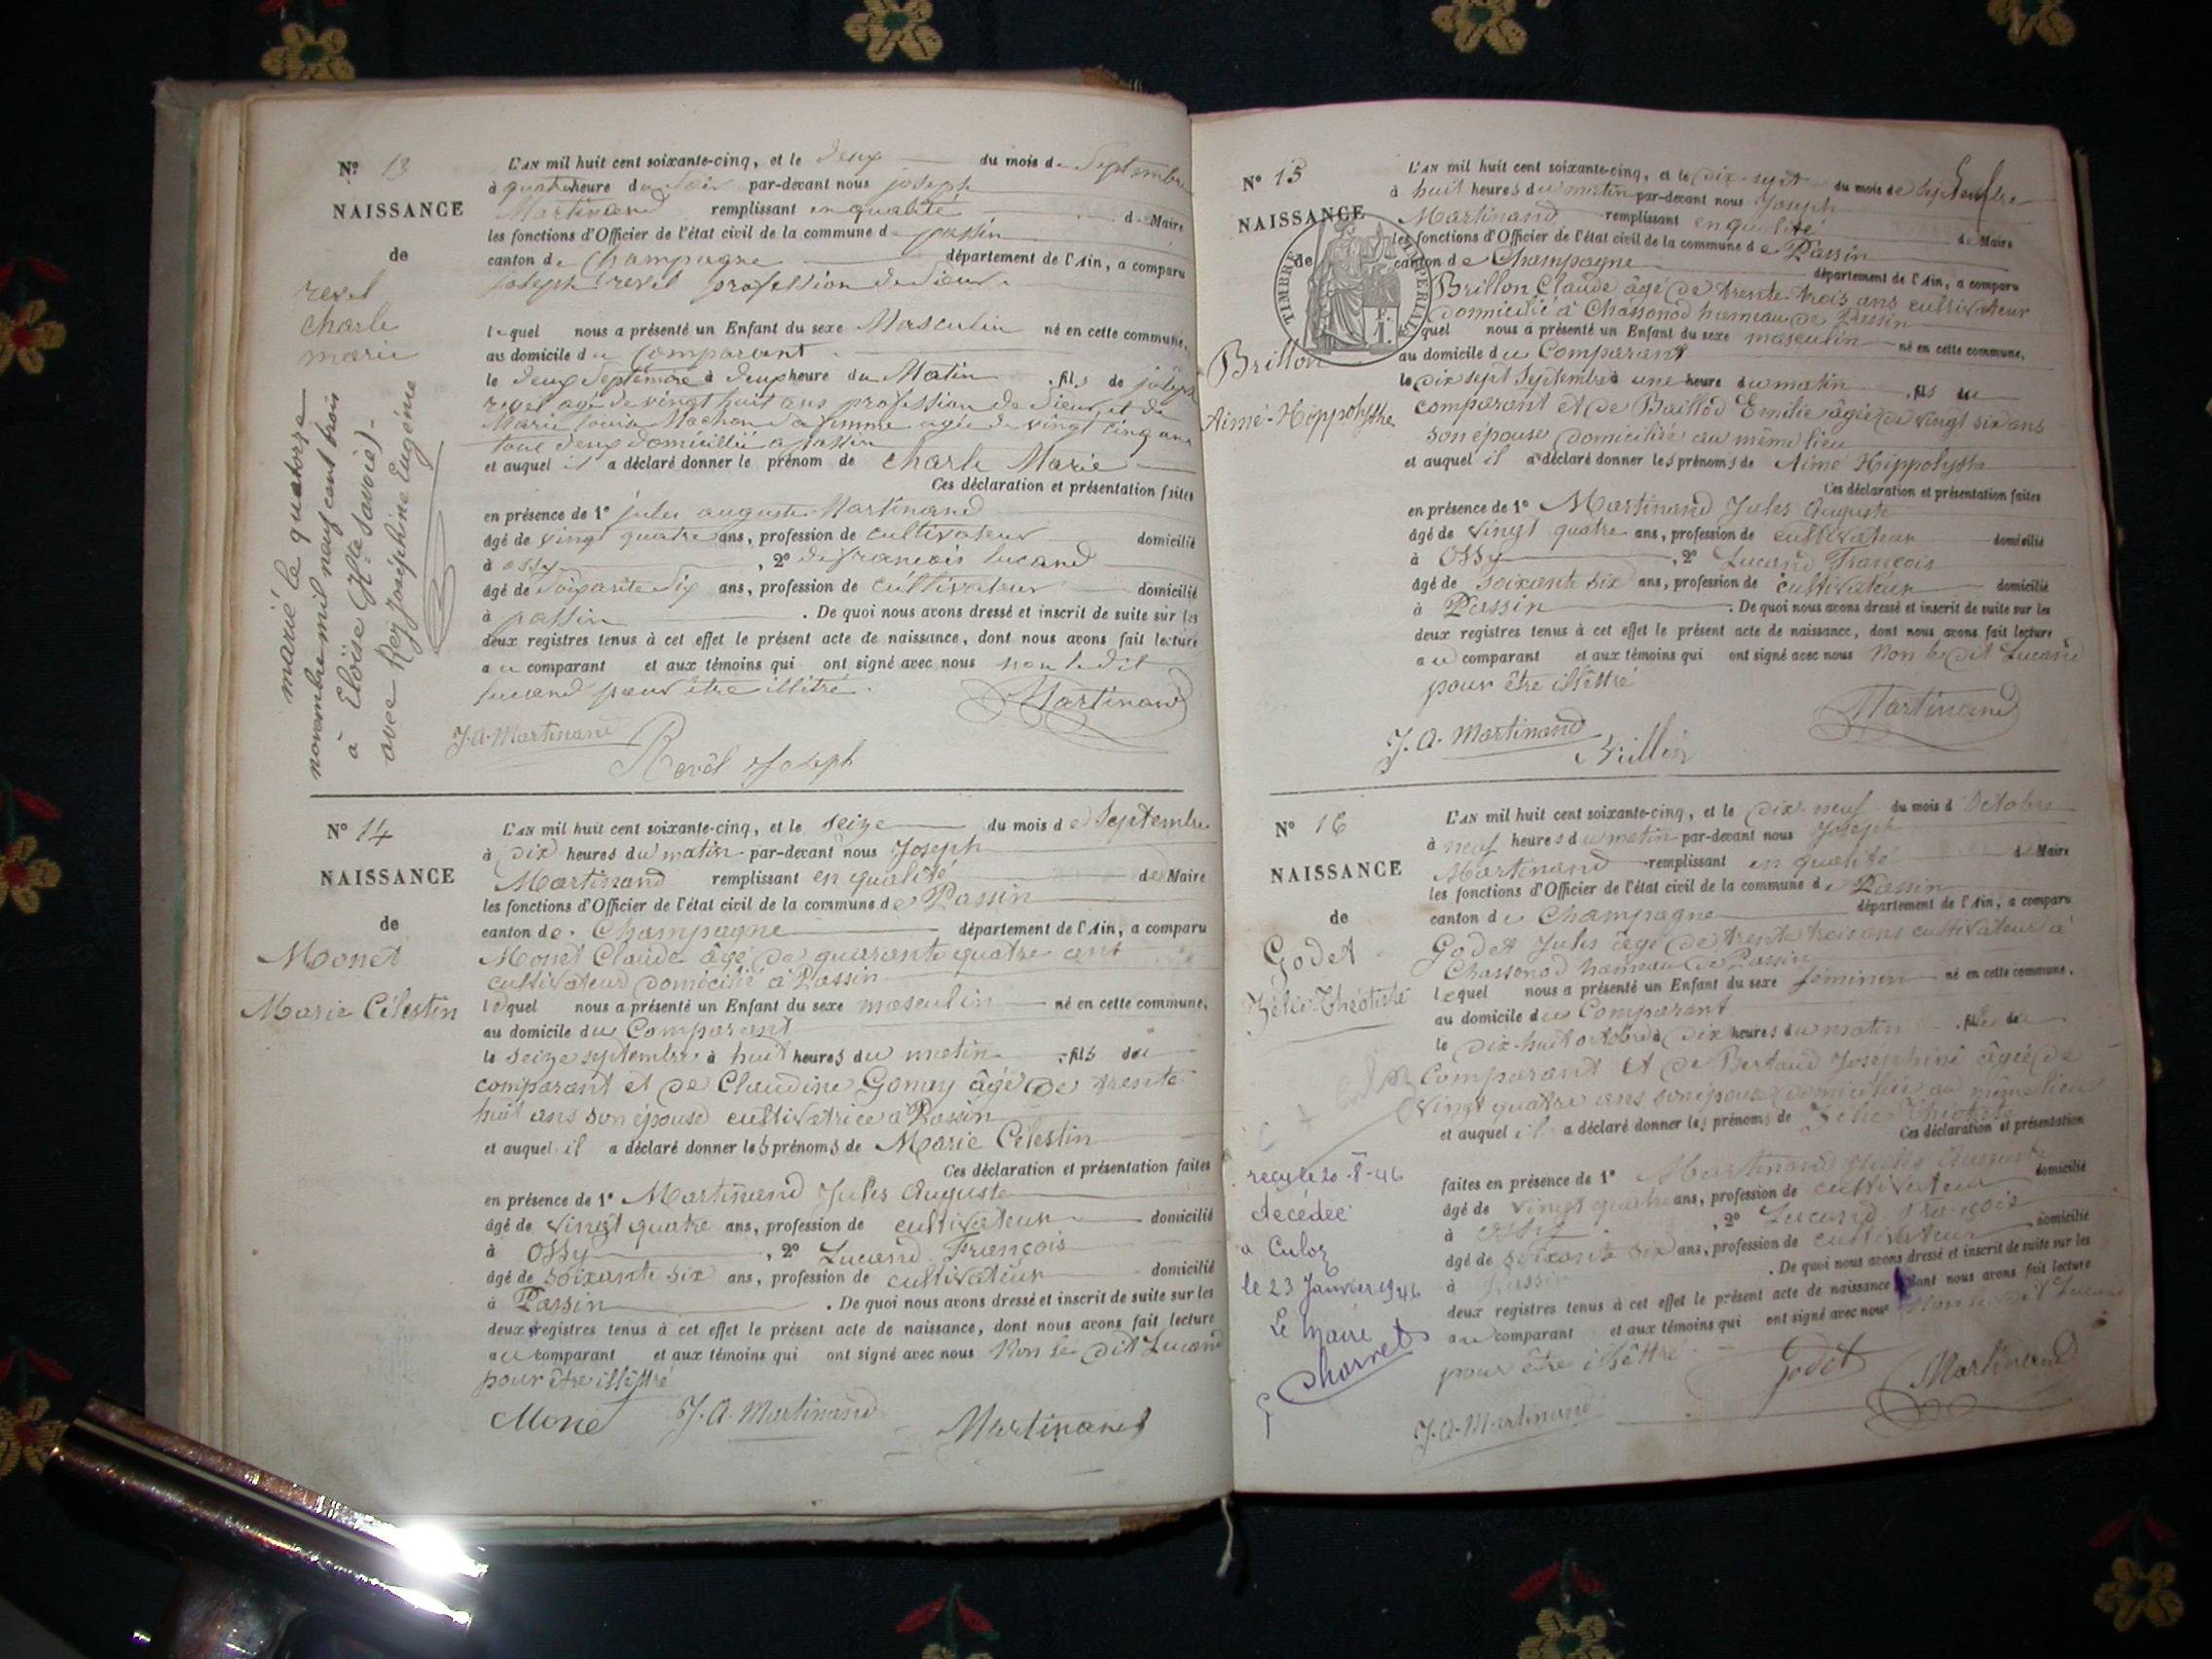 Nº 13
NAISSANCE
de
revel
charle
marie
marié le quatorze
novembre mil neuf cent trois
à Eloïse (Hte Savoie)
avec Rey Joséphine Eugénie
L'AN mil huit cent soixante-cinq, et le deux du mois de Septembre
à quatre heure du Soir par-devant nous joseph
Martinand remplissant en qualité de Maire
les fonctions d'Officier de l'état civil de la commune de passin
canton de Champagne département de l'Ain, a comparu
joseph revel profession de
lequel nous a présenté un Enfant du sexe Masculin né en cette commune,
au domicile du Comparant
le deux Septembre à deux heure du Matin fils de joseph
revel agé de vingt huit ans profession de et de
Marie Machon sa femme agée de vingt cinq ans
tout deux domicillié a passin
et auquel il a déclaré donner le prénom de charle Marie
Ces déclaration et présentation faites
en présence de 1º jules auguste Martinand
âgé de vingt quatre ans, profession de cultivateur domicilié
à ossy, 2º de francois lucand
âgé de soixante six ans, profession de cultivateur domicilié
à passin. De quoi nous avons dressé et inscrit de suite sur les
deux registres tenus à cet effet le présent acte de naissance, dont nous avons fait lecture
au comparant et aux témoins qui ont signé avec nous non le dit
lucand pour être illitré.
Martinand
J. A. Martinand
Revel Joseph
Nº 14
NAISSANCE
de
Monet
Marie Célestin
L'AN mil huit cent soixante-cinq, et le seize du mois de Septembre
à dix heures du matin par-devant nous Joseph
Martinand remplissant en qualité de Maire
les fonctions d'Officier de l'état civil de la commune de Passin
canton de Champagne département de l'Ain, a comparu
Monet Claude âgé de quarante quatre ans
cultivateur domicilié à Passin
lequel nous a présenté un Enfant du sexe masculin né en cette commune,
au domicile du Comparant
le seize septembre à huit heures du matin fils du
comparant et de Claudine Gonay âgé de trente
huit ans son épouse cultivatrice à Passin
et auquel il a déclaré donner les prénoms de Marie Célestin
Ces déclaration et présentation faites
en présence de 1º Martinand Jules Auguste
âgé de vingt quatre ans, profession de cultivateur domicilié
à Ossy, 2º Lucand François
âgé de soixante six ans, profession de cultivateur domicilié
à Passin. De quoi nous avons dressé et inscrit de suite sur les
deux registres tenus à cet effet le présent acte de naissance, dont nous avons fait lecture
au comparant et aux témoins qui ont signé avec nous Non le dit Lucand
pour être illêttré
Monet J. A. Martinand Martinand
Nº 15
NAISSANCE
de
TIMBRE IMPERIAL
1 F.
Brillon
Aimé-Hippolythe
L'AN mil huit cent soixante-cinq, et le dix-sept du mois de Septembre
à huit heures du matin par-devant nous Joseph
Martinand remplissant en qualité de Maire
les fonctions d'Officier de l'état civil de la commune de Passin
canton de Champagne département de l'Ain, a comparu
Brillon Claude âgé de trente-trois ans cultivateur
domicilié à Chassonod hameau de Passin
lequel nous a présenté un Enfant du sexe masculin né en cette commune,
au domicile du Comparant
le dix sept Septembre à une heure du matin fils du
comparant et de Baillod Emilie âgée de vingt six ans
son épouse domiciliée au même lieu
et auquel il a déclaré donner les prénoms de Aimé Hippolythe
Ces déclaration et présentation faites
en présence de 1º Martinand Jules Auguste
âgé de vingt quatre ans, profession de cultivateur domicilié
à Ossy, 2º Lucand François
âgé de soixante six ans, profession de cultivateur domicilié
à Passin. De quoi nous avons dressé et inscrit de suite sur les
deux registres tenus à cet effet le présent acte de naissance, dont nous avons fait lecture
au comparant et aux témoins qui ont signé avec nous Non le dit Lucand
pour être illêttré
J. A. Martinand Brillon Martinand
Nº 16
NAISSANCE
de
Godet
Zélie-Théotiste
décédée
à Culoz
le 23 Janvier 1946
Le Maire
L'AN mil huit cent soixante-cinq, et le dix-neuf du mois d'Octobre
à neuf heures du matin par-devant nous Joseph
Martinand remplissant en qualité de Maire
les fonctions d'Officier de l'état civil de la commune de Passin
canton de Champagne département de l'Ain, a comparu
Godet Jules âgé de trente trois ans cultivateur à
Chassonod hameau de Passin
lequel nous a présenté un Enfant du sexe féminin né en cette commune,
au domicile du Comparant
le dix-huit octobre à dix heures du matin fille du
Comparant et de Bertaud Joséphine âgée de
vingt quatre ans son épouse domiciliée au même lieu
et auquel il a déclaré donner les prénoms de Zélie Théotiste
Ces déclaration et présentation
faites en présence de 1º Martinand Jules Auguste
âgé de vingt quatre ans, profession de cultivateur domicilié
à Ossy, 2º Lucand François
âgé de soixante six ans, profession de cultivateur domicilié
à Passin. De quoi nous avons dressé et inscrit de suite sur les
deux registres tenus à cet effet le présent acte de naissance dont nous avons fait lecture
au comparant et aux témoins qui ont signé avec nous Non le dit Lucand
pour être illêttré
Godet Martinand
J. A. Martinand